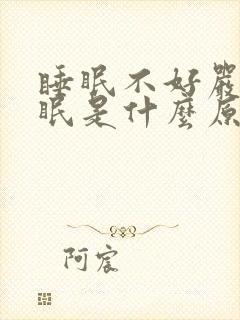 睡眠不好嚴
眠是什麼原
阿宸